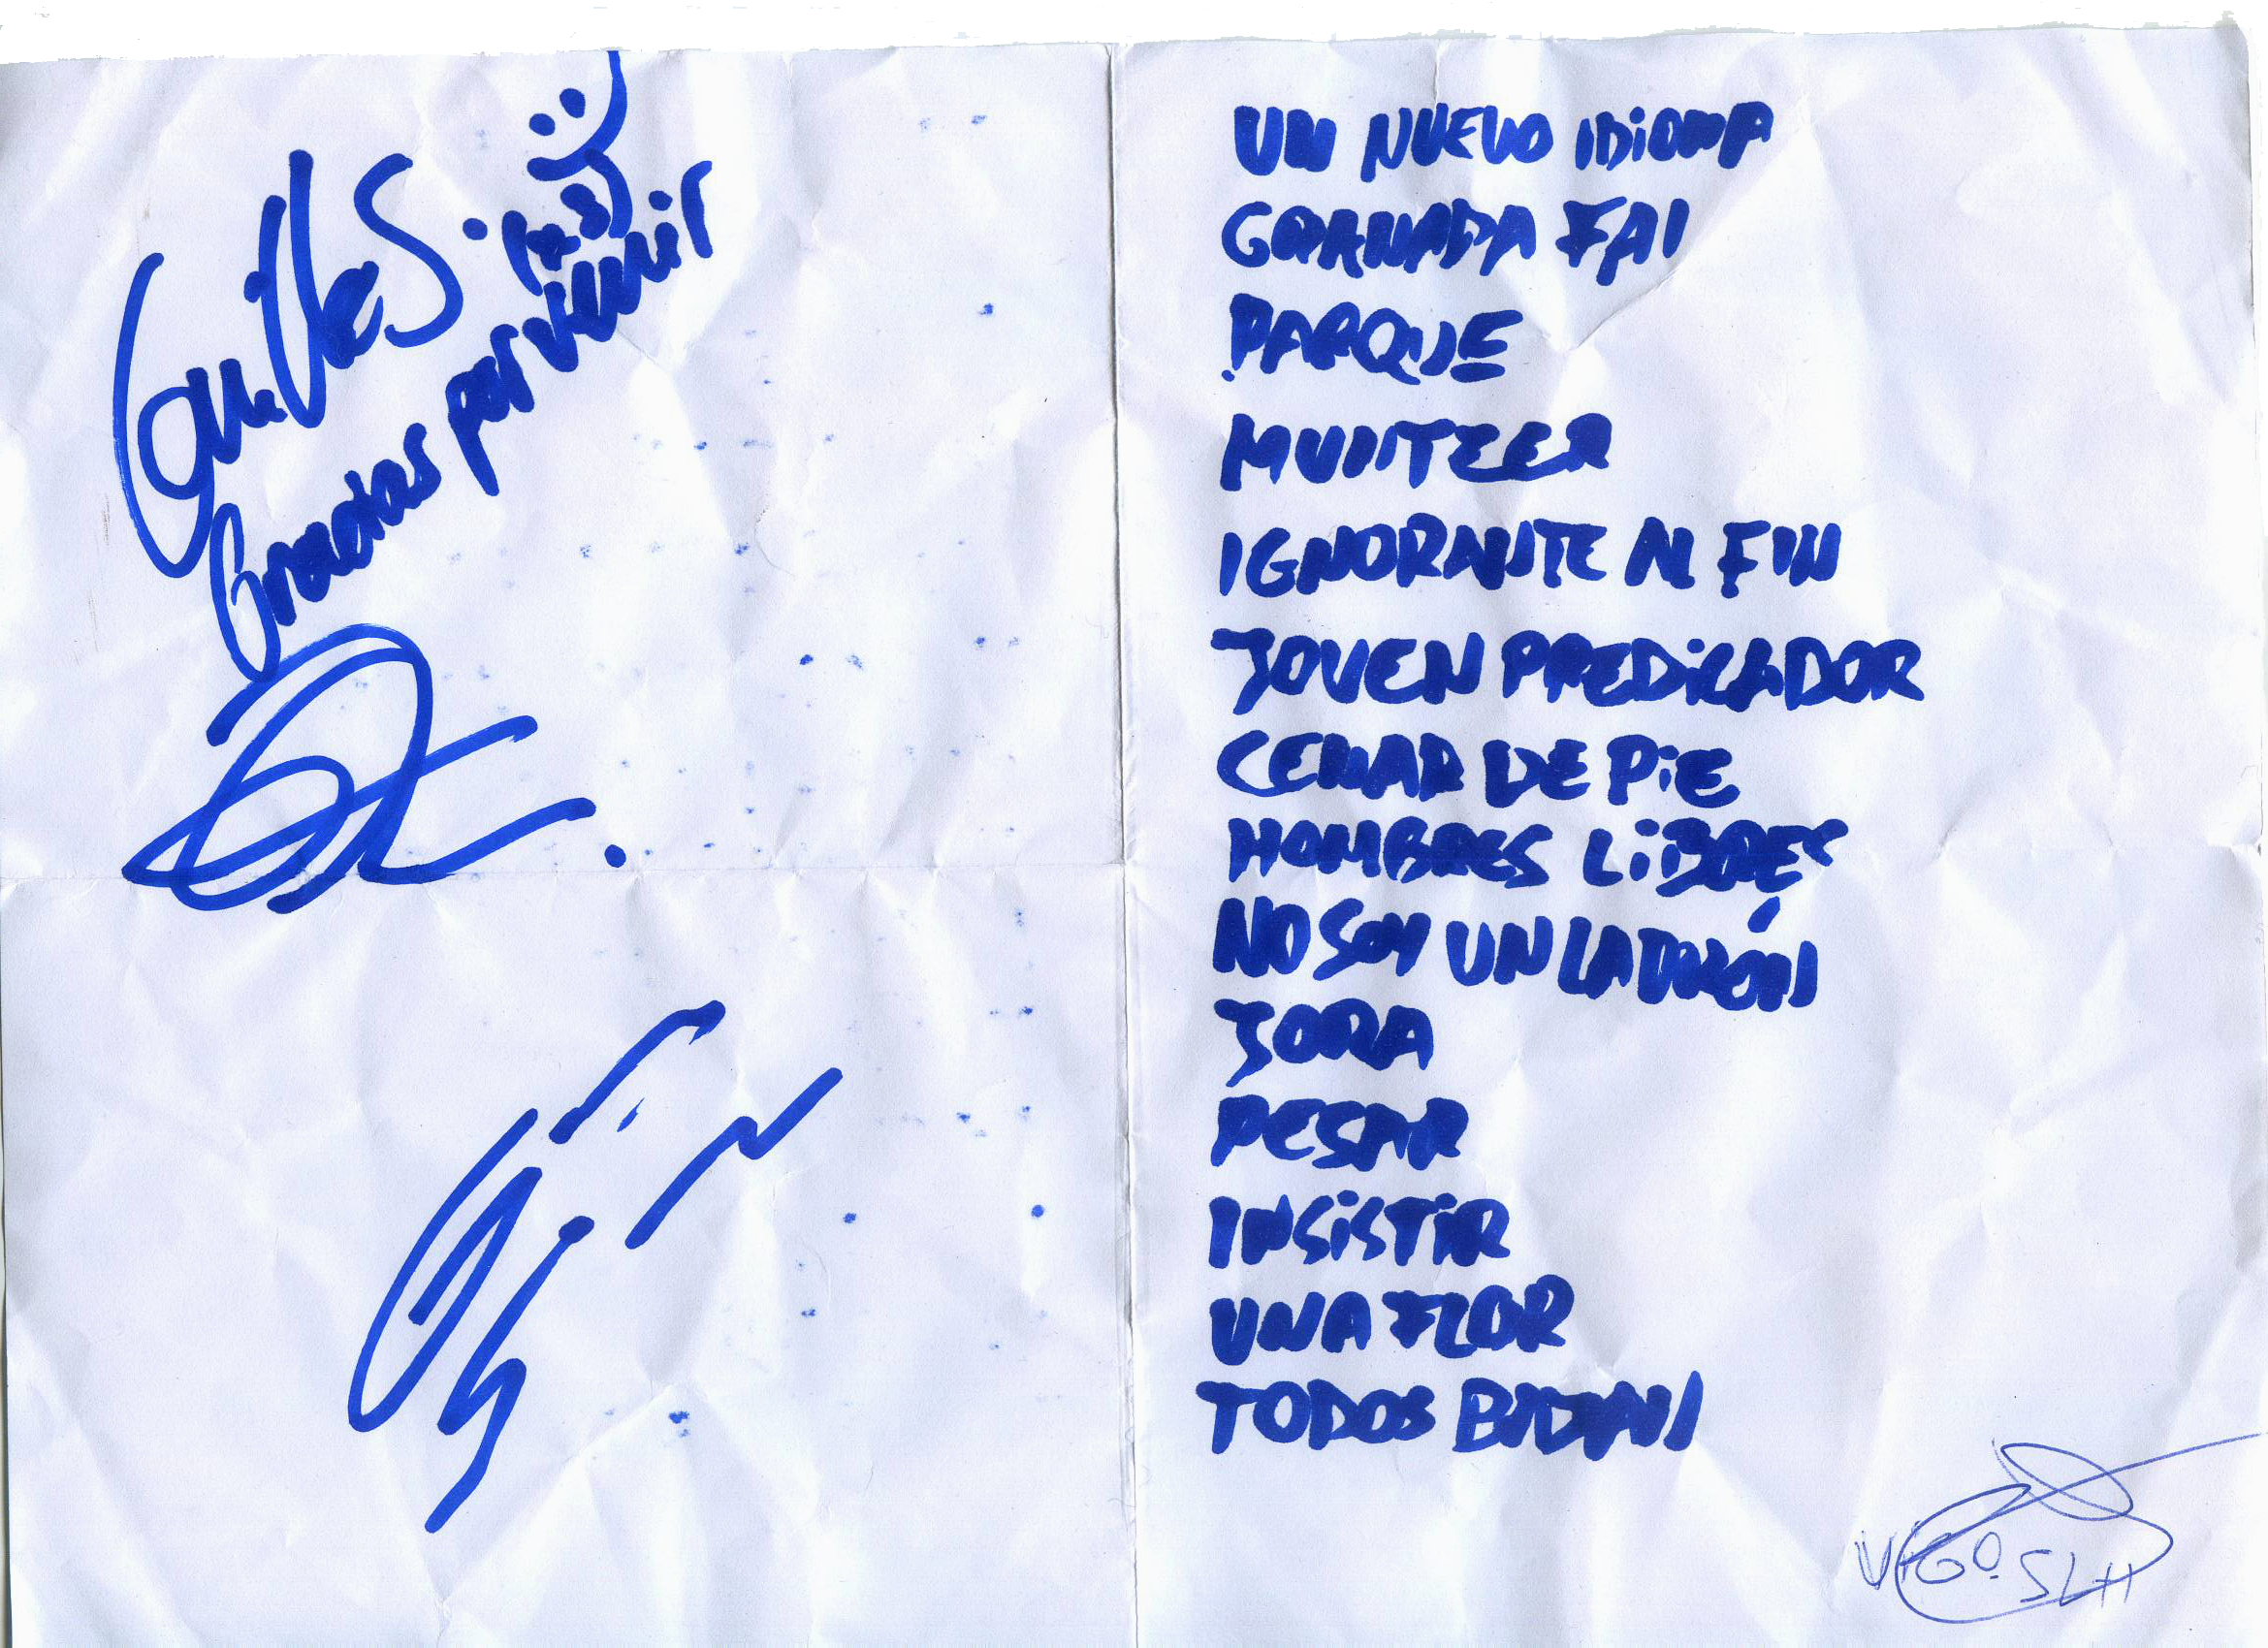 Gracias por venir
UN NUEVO IDIOMA
GRANADA FAI
PARQUE
MUNTZER
IGNORANTE AL FIN
JOVEN PREDICADOR
CENAR DE PIE
HOMBRES LIBRES
NO SOY UN LADRÓN
JORA
PESAR
INSISTIR
UNA FLOR
TODOS
VIGO. SLH